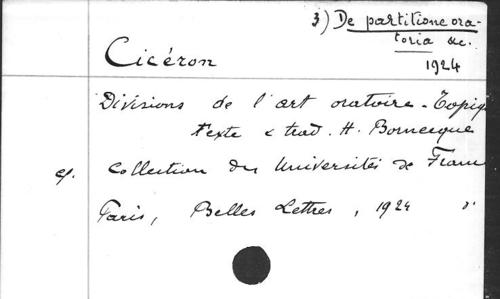 3) De partitione ora-
toria &c.
Cicéron
1924
Divisions de l'art oratoire - Topiq
texte & trad. H. Bornecque
cf. Collection des Universités de Fran
Paris, Belles Lettres, 1924